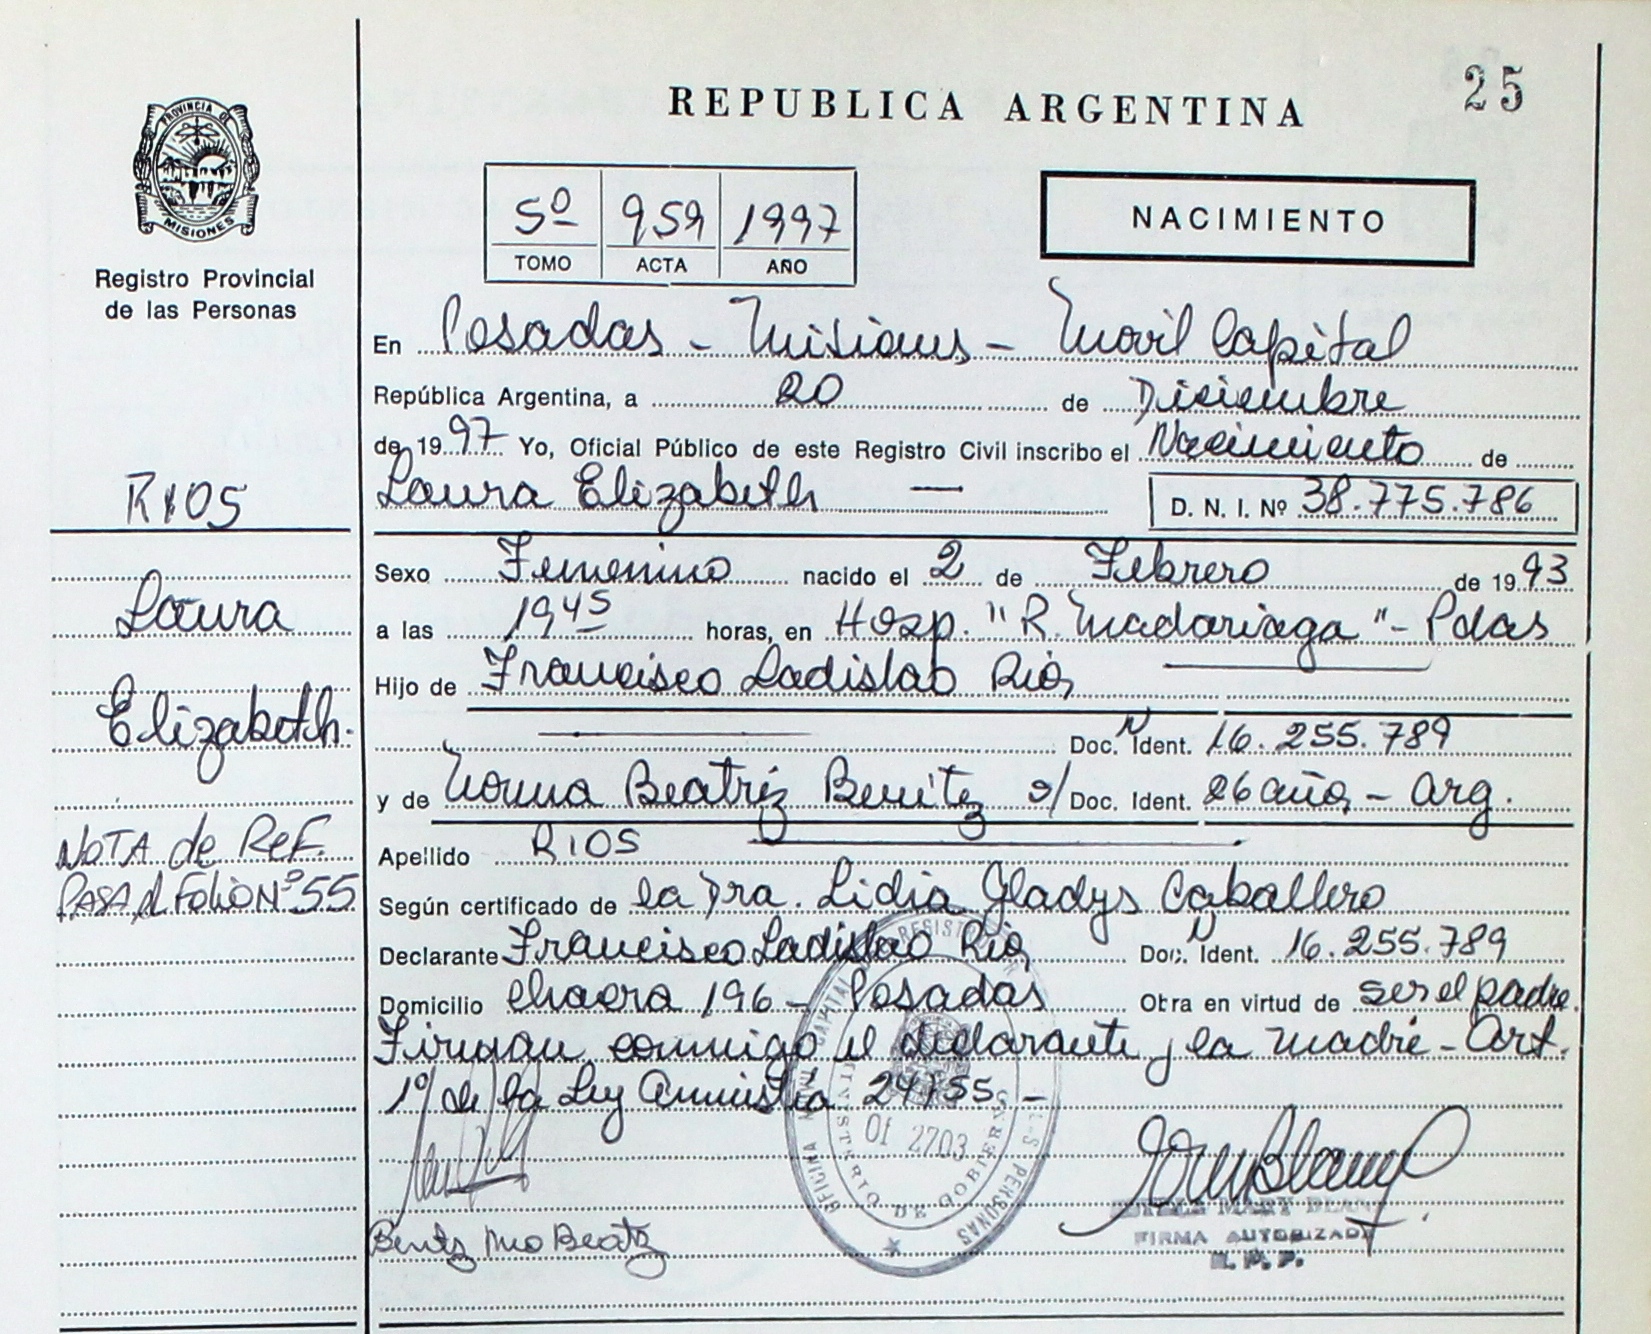 25
REPUBLICA ARGENTINA
PROVINCIA DE
MISIONES
Registro Provincial
de las Personas
5º 959 1997
TOMO ACTA AÑO
NACIMIENTO
En Posadas - Misiones - Movil Capital
República Argentina, a 20 de Diciembre
de 1997 Yo, Oficial Público de este Registro Civil inscribo el Nacimiento de
Laura Elizabeth — D. N. I. Nº 38.775.786
RIOS
Laura
Elizabeth.
NOTA de REF.
PASA al Folio Nº 55
Sexo Femenino nacido el 2 de Febrero de 1993
a las 19 45 horas, en Hosp. "R. Madariaga" - Pdas
Hijo de Francisco Ladislao Rios
Doc. N Ident. 16.255.789
y de Norma Beatriz Benitez s/ Doc. Ident. 26 años - Arg.
Apellido RIOS
Según certificado de la Dra. Lidia Gladys Caballero
Declarante Francisco Ladislao Rios Doc. N Ident. 16.255.789
Domicilio chacra 196 - Posadas Obra en virtud de ser el padre.
Firman conmigo el declarante y la madre - Art.
1º de la Ley Amnistia 24755 -
01 2703
MINISTERIO DE GOBIERNO
Beatz
MARY BLAN
FIRMA AUTORIZADA
R. P. P.